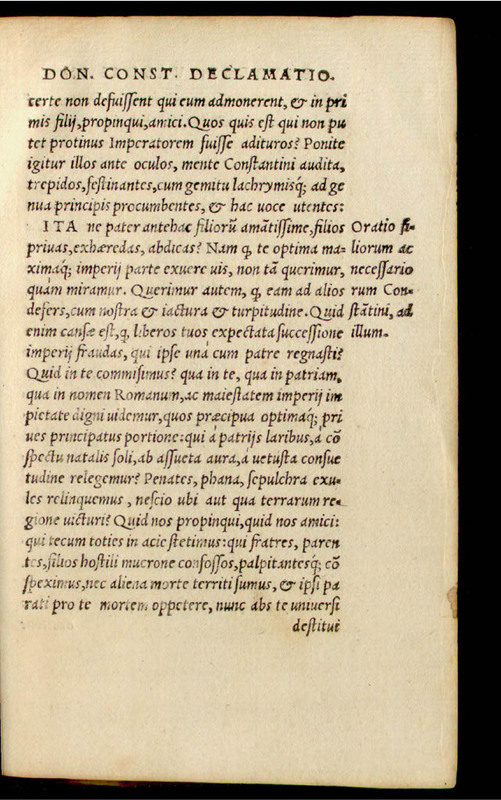 DON. CONST. DECLAMATIO.
certe non defuissent qui eum admonerent, & in pri
mis filij, propinqui, amici. Quos quis est qui non pu
tet protinus Imperatorem fuisse adituros? Ponite
igitur illos ante oculos, mente Constantini audita,
trepidos, festinantes, cum gemitu lachrymisq; ad ge
nua principis procumbentes, & hac uoce utentes:
ITA ne pater antehac filiorū amātissime, filios
priuas, exhæredas, abdicas? Nam q, te optima ma-
ximaq́; imperij parte exuere uis, non tā querimur,
quàm miramur. Querimur autem, q, eam ad alios
defers, cum nostra & iactura & turpitudine. Quid
enim causæ est, q, liberos tuos expectata successione
imperij fraudas, qui ipse unà cum patre regnasti?
Quid in te commisimus? qua in te, qua in patriam,
qua in nomen Romanum, ac maiestatem imperij im
pietate digni uidemur, quos præcipua optimaq́; pri
ues principatus portione: qui à patrijs laribus, à cō
spectu natalis soli, ab assueta aura, à uetusta consue
tudine relegemur? Penates, phana, sepulchra exu-
les relinquemus, nescio ubi aut qua terrarum re-
gione uicturi? Quid nos propinqui, quid nos amici:
qui tecum toties in acie stetimus: qui fratres, paren
tes, filios hostili mucrone confossos, palpitantesq́; cō
speximus, nec aliena morte territi sumus, & ipsi pa
rati pro te mortem oppetere, nunc abs te uniuersi
destitui
Oratio fi-
liorum ac
necessario
rum Con-
stātini, ad
illum.